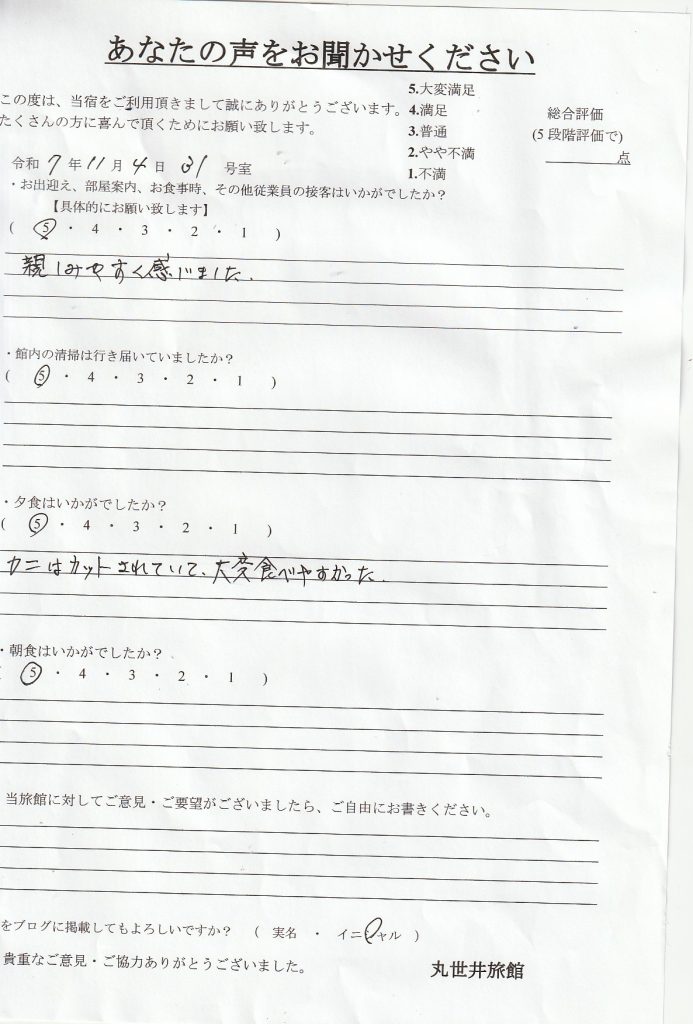 あなたの声をお聞かせください
この度は、当宿をご利用頂きまして誠にありがとうございます。
たくさんの方に喜んで頂くためにお願い致します。
5.大変満足
4.満足
3.普通
2.やや不満
1.不満
総合評価
(5段階評価で)
点
令和 7 年 11 月 4 日 31 号室
・お出迎え、部屋案内、お食事時、その他従業員の接客はいかがでしたか？
【具体的にお願い致します】
( 5 ・ 4 ・ 3 ・ 2 ・ 1 )
親しみやすく感じました.
・館内の清掃は行き届いていましたか？
( 5 ・ 4 ・ 3 ・ 2 ・ 1 )
・夕食はいかがでしたか？
( 5 ・ 4 ・ 3 ・ 2 ・ 1 )
カニはカットされていて、大変食べやすかった.
・朝食はいかがでしたか？
( 5 ・ 4 ・ 3 ・ 2 ・ 1 )
当旅館に対してご意見・ご要望がございましたら、ご自由にお書きください。
をブログに掲載してもよろしいですか？ ( 実名 ・ イニシャル )
貴重なご意見・ご協力ありがとうございました。
丸世井旅館